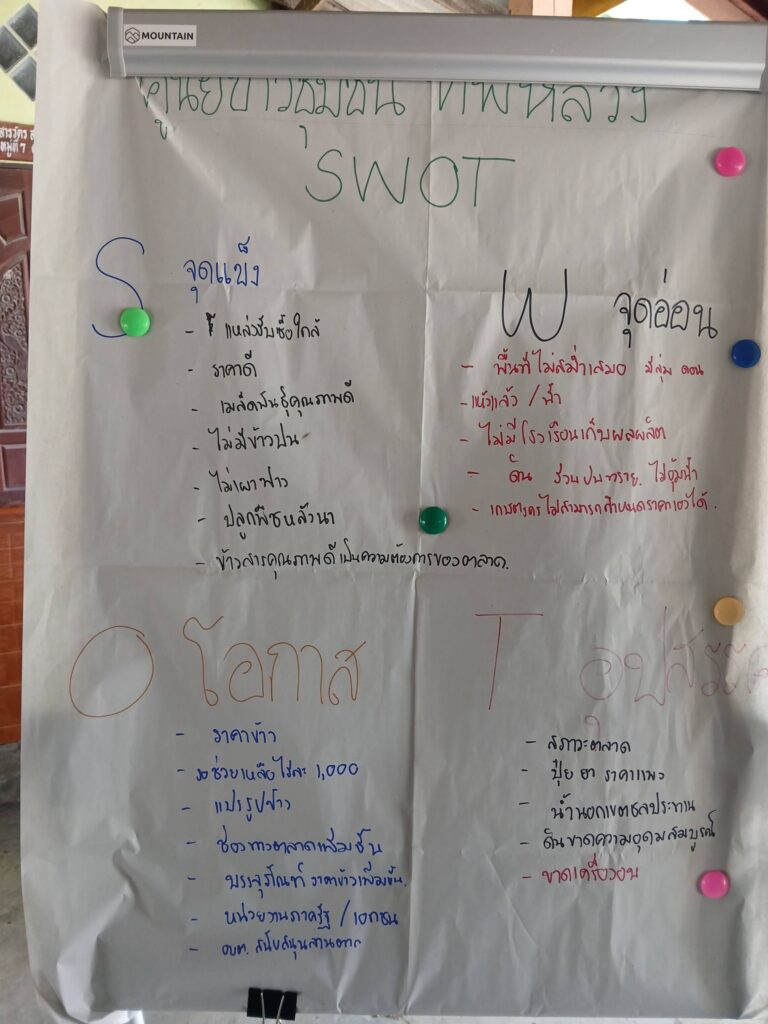 MOUNTAIN
ศูนย์ข้าวชุมชน ทัพหลวง
SWOT
S จุดแข็ง
- แหล่งรับซื้อใกล้
- ราคาดี
- เมล็ดพันธุ์คุณภาพดี
- ไม่มีข้าวปน
- ไม่เผาฟาง
- ปลูกพืชหลังนา
- ข้าวสารคุณภาพดีเป็นความต้องการของตลาด.
W จุดอ่อน
- พื้นที่ไม่สม่ำเสมอ มีลุ่ม ดอน
- แห้งแล้ง / น้ำ
- ไม่มีโรงเรือนเก็บผลผลิต
- ดิน ร่วนปนทราย. ไม่อุ้มน้ำ
- เกษตรกรไม่สามารถกำหนดราคาเองได้.
O โอกาส
- ราคาข้าว
- รอช่วยเหลือไร่ละ 1,000
- แปรรูปข้าว
- ช่องทางตลาดเพิ่มขึ้น
- บรรจุภัณฑ์ ราคาข้าวเพิ่มขึ้น.
- หน่วยงานภาครัฐ / เอกชน
- อบต. สนับสนุนลานตาก
T อุปสรรค
- สภาวะตลาด
- ปุ๋ย ยา ราคาแพง
- น้ำนอกเขตชลประทาน
- ดินขาดความอุดมสมบูรณ์
- ขาดเครื่องอบ